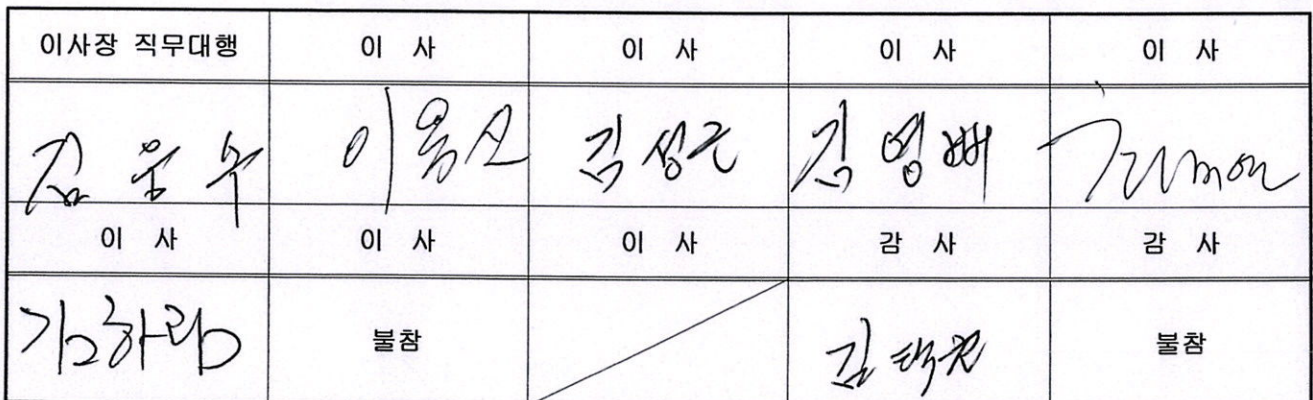 이사장 직무대행 이 사 이 사 이 사 이 사
김성근 김영배
이 사 이 사 이 사 감 사 감 사
김하림 불참 불참